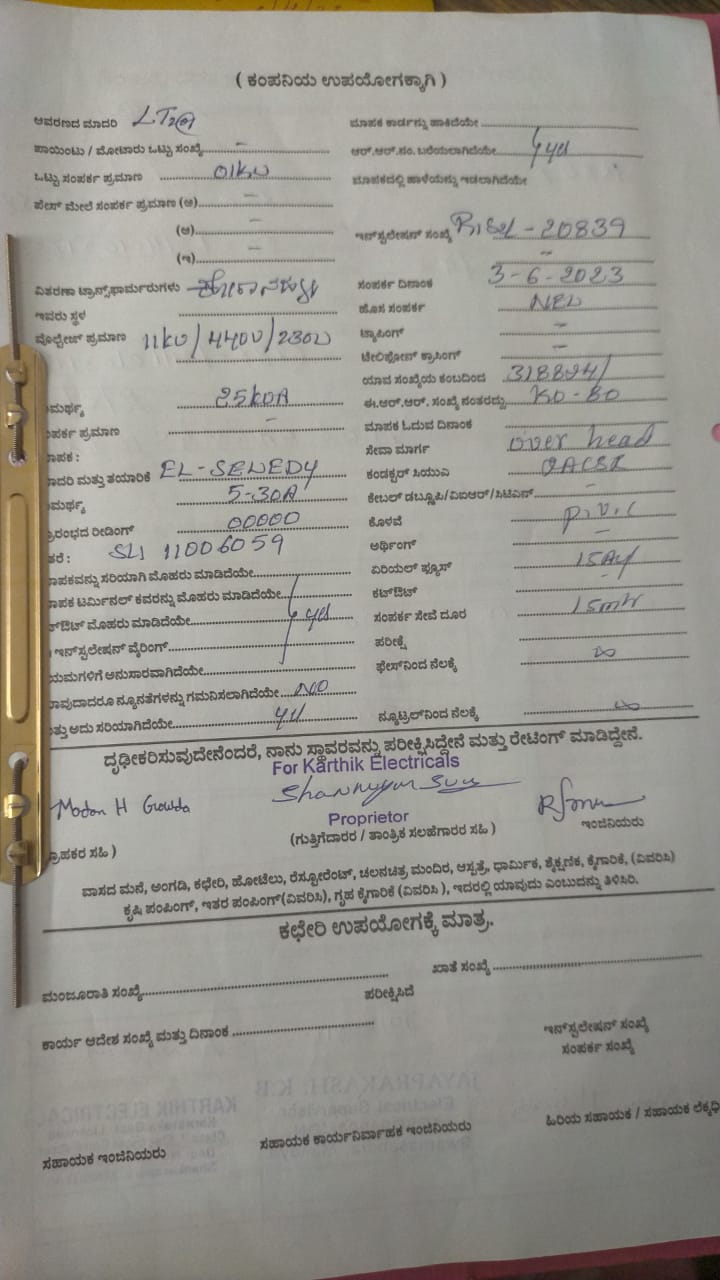 ( ಕಂಪನಿಯ ಉಪಯೋಗಕ್ಕಾಗಿ )
ಆವರಣದ ಮಾದರಿ LT2(a)
ಮಾಪಕ ಕಾರ್ಡನ್ನು ಹಾಕಿದೆಯೇ
ಪಾಯಿಂಟು / ಮೋಟಾರು ಒಟ್ಟು ಸಂಖ್ಯೆ –
ಆರ್.ಆರ್.ನಂ. ಬರೆಯಲಾಗಿದೆಯೇ yes
ಒಟ್ಟು ಸಂಪರ್ಕ ಪ್ರಮಾಣ 01KW
ಮಾಪಕದಲ್ಲಿ ಹಾಳೆಯನ್ನು ಇಡಲಾಗಿದೆಯೇ
ಫೇಸ್ ಮೇಲೆ ಸಂಪರ್ಕ ಪ್ರಮಾಣ (ಅ) –
(ಆ) –
ಇನ್‌ಸ್ಟಲೇಷನ್ ಸಂಖ್ಯೆ - 20839
(ಇ) –
–
ವಿತರಣಾ ಟ್ರಾನ್ಸ್‌ಫಾರ್ಮರುಗಳು
ಸಂಪರ್ಕ ದಿನಾಂಕ 3-6-2023
ಇವರು ಸ್ಥಳ
ಹೊಸ ಸಂಪರ್ಕ NEW
ವೊಲ್ಟೇಜ್ ಪ್ರಮಾಣ 11KV/440V/230V
ಟ್ಯಾಪಿಂಗ್ –
ಟೆಲಿಫೋನ್ ಕ್ರಾಸಿಂಗ್ –
ಯಾವ ಸಂಖ್ಯೆಯ ಕಂಬದಿಂದ 318894/
ಮರ್ಥ್ಯ 25KVA
ಈ.ಆರ್.ಆರ್. ಸಂಖ್ಯೆ ನಂತರದ್ದು KD-80
ಂಪರ್ಕ ಪ್ರಮಾಣ –
ಮಾಪಕ ಓದುವ ದಿನಾಂಕ
ಾಪಕ :
ಸೇವಾ ಮಾರ್ಗ over head
ಾದರಿ ಮತ್ತು ತಯಾರಿಕೆ EL-SEWEDY
ಕಂಡಕ್ಟರ್ ಸಿಯುಎ ACSR
ಮರ್ಥ್ಯ 5-30A
ಕೇಬಲ್ ಡಬ್ಲ್ಯೂಪಿ/ವಿಐಆರ್/ಸಿಟಿಎಸ್ –
್ರಾರಂಭದ ರೀಡಿಂಗ್ 00000
ಕೊಳವೆ P.V.C
ತರೆ : SLI 11006059
ಅರ್ಥಿಂಗ್ –
ಾಪಕವನ್ನು ಸರಿಯಾಗಿ ಮೊಹರು ಮಾಡಿದೆಯೇ
ಏರಿಯಲ್ ಫ್ಯೂಸ್ 15Ay
ಾಪಕ ಟರ್ಮಿನಲ್ ಕವರನ್ನು ಮೊಹರು ಮಾಡಿದೆಯೇ
ಕಟ್‌ಔಟ್
ಟ್‌ಔಟ್ ಮೊಹರು ಮಾಡಿದೆಯೇ yes
ಸಂಪರ್ಕ ಸೇವೆ ದೂರ 15mtr
ಇನ್‌ಸ್ಟಲೇಷನ್ ವೈರಿಂಗ್
ಪರೀಕ್ಷೆ
ಯಮಗಳಿಗೆ ಅನುಸಾರವಾಗಿದೆಯೇ
ಫೇಸ್‌ನಿಂದ ನೆಲಕ್ಕೆ ∞
ಾವುದಾದರೂ ನ್ಯೂನತೆಗಳನ್ನು ಗಮನಿಸಲಾಗಿದೆಯೇ NO
ತ್ತು ಅದು ಸರಿಯಾಗಿದೆಯೇ yes
ನ್ಯೂಟ್ರಲ್‌ನಿಂದ ನೆಲಕ್ಕೆ ∞
ದೃಢೀಕರಿಸುವುದೇನೆಂದರೆ, ನಾನು ಸ್ಥಾವರವನ್ನು ಪರೀಕ್ಷಿಸಿದ್ದೇನೆ ಮತ್ತು ರೇಟಿಂಗ್ ಮಾಡಿದ್ದೇನೆ.
For Karthik Electricals
Madan H Gowda
Proprietor
(ಗುತ್ತಿಗೆದಾರರ / ತಾಂತ್ರಿಕ ಸಲಹೆಗಾರರ ಸಹಿ )
ಇಂಜಿನಿಯರು
್ರಾಹಕರ ಸಹಿ )
ವಾಸದ ಮನೆ, ಅಂಗಡಿ, ಕಛೇರಿ, ಹೋಟೆಲು, ರೆಸ್ಟೋರೆಂಟ್, ಚಲನಚಿತ್ರ ಮಂದಿರ, ಆಸ್ಪತ್ರೆ, ಧಾರ್ಮಿಕ, ಶೈಕ್ಷಣಿಕ, ಕೈಗಾರಿಕೆ, (ವಿವರಿಸಿ)
ಕೃಷಿ ಪಂಪಿಂಗ್, ಇತರ ಪಂಪಿಂಗ್(ವಿವರಿಸಿ), ಗೃಹ ಕೈಗಾರಿಕೆ (ವಿವರಿಸಿ ), ಇದರಲ್ಲಿ ಯಾವುದು ಎಂಬುದನ್ನು ತಿಳಿಸಿರಿ.
ಕಛೇರಿ ಉಪಯೋಗಕ್ಕೆ ಮಾತ್ರ.
ಮಂಜೂರಾತಿ ಸಂಖ್ಯೆ
ಖಾತೆ ಸಂಖ್ಯೆ
ಪರೀಕ್ಷಿಸಿದೆ
ಕಾರ್ಯ ಆದೇಶ ಸಂಖ್ಯೆ ಮತ್ತು ದಿನಾಂಕ
ಇನ್‌ಸ್ಟಲೇಷನ್ ಸಂಖ್ಯೆ
ಸಂಪರ್ಕ ಸಂಖ್ಯೆ
ಸಹಾಯಕ ಇಂಜಿನಿಯರು
ಸಹಾಯಕ ಕಾರ್ಯನಿರ್ವಾಹಕ ಇಂಜಿನಿಯರು
ಹಿರಿಯ ಸಹಾಯಕ / ಸಹಾಯಕ ಲೆಕ್ಕಧಿ